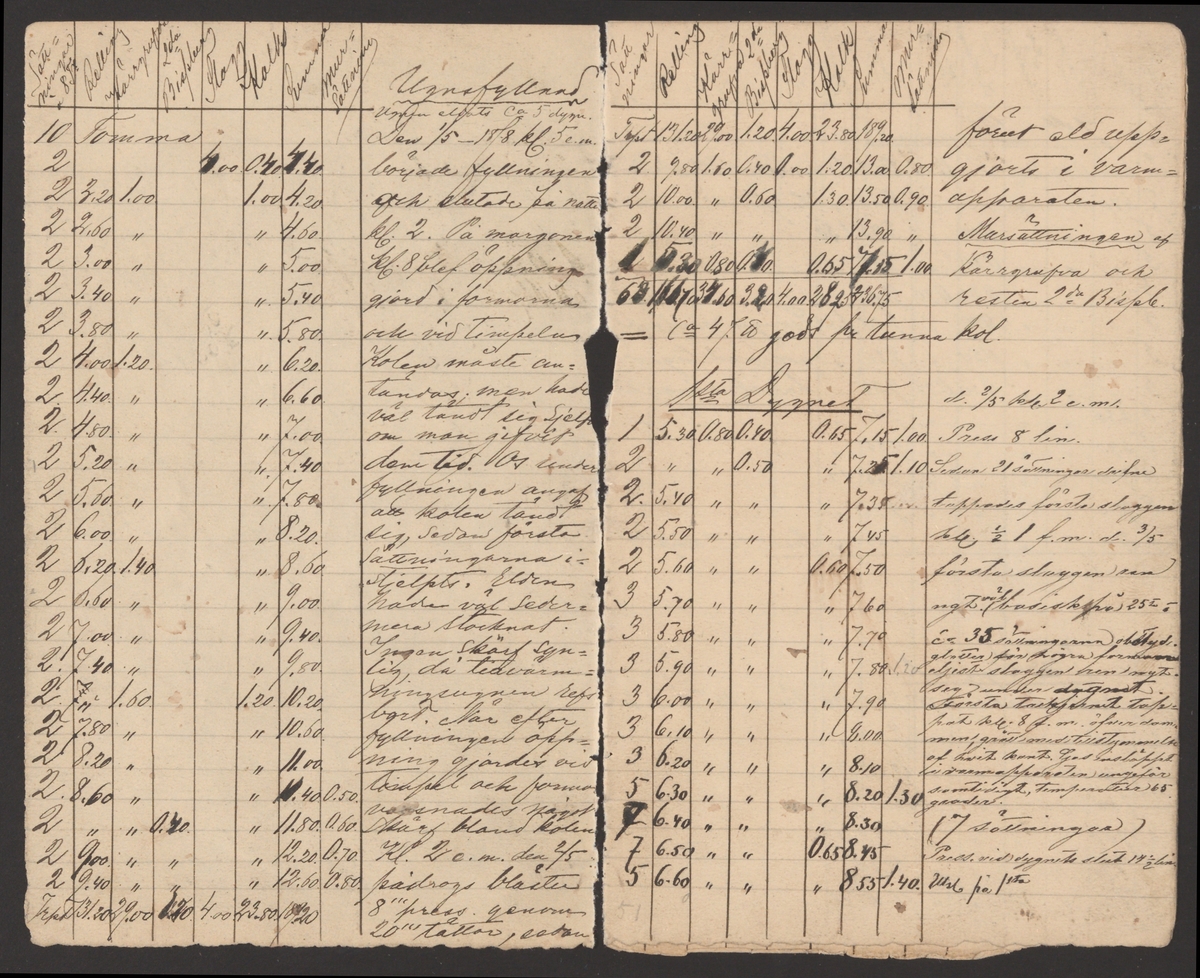 Sätt=
ningar
Rälling
Kärrgrufva
2da
Bispberg
Slagg
Kalk
Summa
Mur=
sättning
Ugnsfyllnad
Ugnen eldats ca 5 dygn.
10 Tomma Den 1/5 — 1878 kl. 5 e.m.
2 4.00 0.40 4.40 började fyllningen
2 3.20 1.00 1.00 4.20 och slutade på natten
2 2.60 " " 4.60 kl. 2. På morgonen
2 3.00 " " 5.00 kl. 8 blef öppning
2 3.40 " " 5.40 gjord i formorna
2 3.80 " " 5.80 och vid timpeln
2 4.00 1.20 " 6.20 Kolen måste an=
2 4.40 " " 6.60 tändas, men hade
väl tändt sig sjelfva
2 4.80 " " 7.00 om man gifvit
2 5.20 " " 7.40 dem tid. Os under
2 5.60 " " 7.80 fyllningen angaf
att kolen tändt
2 6.00 " " 8.20 sig, sedan första
2 6.20 1.40 " 8.60 sättningarna i=
stjelpts. Elden
2 6.60 " " 9.00 hade väl seder=
2 7.00 " " 9.40 mera slocknat.
Ingen skärf syn=
2 7.40 " " 9.80 lig, då
2 " 1.60 1.20 10.20
bort. När efter
2 7.80 " " 10.60 fyllningen öpp=
2 8.20 " " 11.00 ning gjordes vid
2 8.60 " " 11.40 0.50 timpel och forma
varsnades något
2 " " 0.40 " 11.80 0.60 skärf bland kolen
2 9.00 " " " 12.20 0.70 Kl. 2 e.m. den 2/5
2 9.40 " " " 12.60 0.80 pådrogs bläster
Trpt 131.20 29.00 1.20 4.00 23.80 189.20 8''' press. genom
20''' tättor, sedan
Sätt
ningar
Rälling
Kärr=
grufva
2da
Bispberg
Slagg
Kalk
Summa
Mur=
sättning
Trpt 131.20 29.00 1.20 4.00 23.80 189.20 förut eld upp=
2 9.80 1.60 0.40 0.00 1.20 13.00 0.80 gjorts i varm=
2 10.00 " 0.60 1.30 13.50 0.90 apparaten.
2 10.40 " " " 13.90 " Mursättningen af
1 5.30 0.80 0.40 0.65 7.15 1.00 Kärrgrufva och
4.00 236.75 resten 2da Bispb.
= Ca 4 % gods pr tunna kol.
1sta Dygnet d. 2/5 kl. 2 e.m.
1 5.30 0.80 0.40 0.65 7.15 1.00 Press 8 lin.
2 " " 0.50 " 7.25 1.10 Sedan 21 sättningar drifne
2. 5.40 " " " 7.35 tappades första slaggen
2 5.50 " " " 7.45 kl. ½ 1 f.m. d. 3/5
2 5.60 " " 0.60 7.50 första slaggen ren
3 5.70 " " " 7.60 ngt väl basisk från 25te
3 5.80 " " " 7.70 ca 35 sättningarna obetyd.
3 5.90 " " " 7.80 1.20 eljest slaggen ren
3 6.00 " " " 7.90 seg under dygnet.
Första tackjernet tap=
3 6.10 " " " 8.00 pat kl. 8 f.m. öfver dam=
3 6.20 " " " 8.10 af hvit kant. Gas insläppt
i varmapparaten ungefär
5 6.30 " " " 8.20 1.30 samtidigt, temperatur 65
grader.
7 6.40 " " " 8.30 (7 sättningar)
7 6.50 " " 0.65 8.45 Press. vid dygnets slut 14½ lin
5 6.60 " " " 8.55 1.40. Utsl. på 1sta